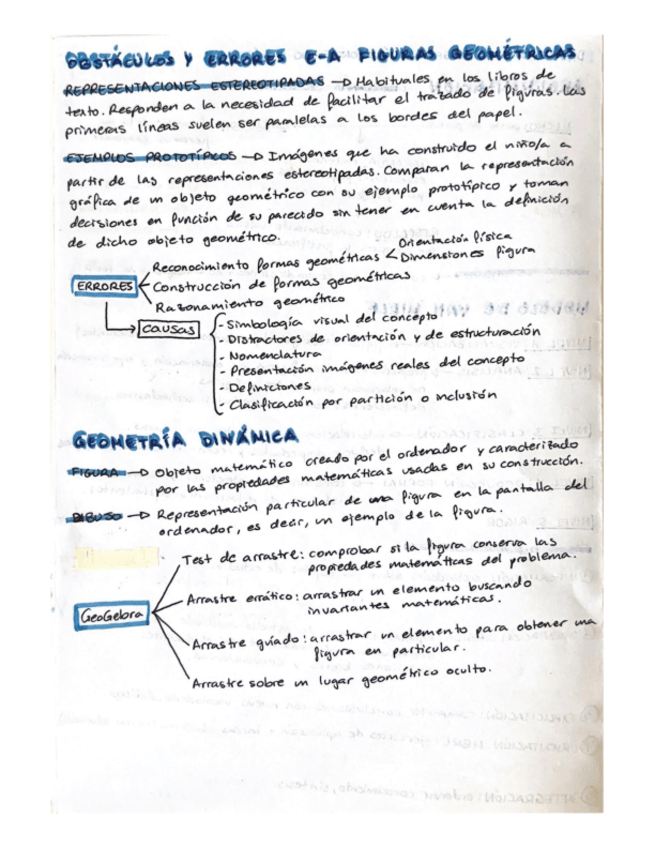 OBSTÁCULOS Y ERRORES E-A FIGURAS GEOMÉTRICAS
REPRESENTACIONES ESTEREOTIPADAS → Habituales en los libros de
texto. Responden a la necesidad de facilitar el trazado de figuras. Las
primeras líneas suelen ser paralelas a los bordes del papel.
EJEMPLOS PROTOTÍPICOS → Imágenes que ha construido el niño/a a
partir de las representaciones estereotipadas. Comparan la representación
gráfica de un objeto geométrico con su ejemplo prototípico y toman
decisiones en función de su parecido sin tener en cuenta la definición
de dicho objeto geométrico.
ERRORES
Reconocimiento formas geométricas
Orientación física
Dimensiones figura
Construcción de formas geométricas
Razonamiento geométrico
CAUSAS
- Simbología visual del concepto
- Distractores de orientación y de estructuración
- Nomenclatura
- Presentación imágenes reales del concepto
- Definiciones
- Clasificación por partición o inclusión
GEOMETRÍA DINÁMICA
FIGURA → Objeto matemático creado por el ordenador y caracterizado
por las propiedades matemáticas usadas en su construcción.
DIBUJO → Representación particular de una figura en la pantalla del
ordenador, es decir, un ejemplo de la figura.
GeoGebra
Test de arrastre: comprobar si la figura conserva las
propiedades matemáticas del problema.
Arrastre errático: arrastrar un elemento buscando
invariantes matemáticas.
Arrastre guiado: arrastrar un elemento para obtener una
figura en particular.
Arrastre sobre un lugar geométrico oculto.